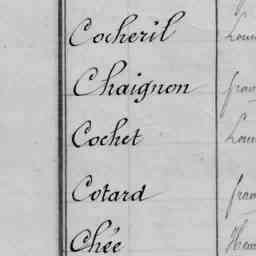 Cocheril
Chaignon
Cochet
Cotard
Chée